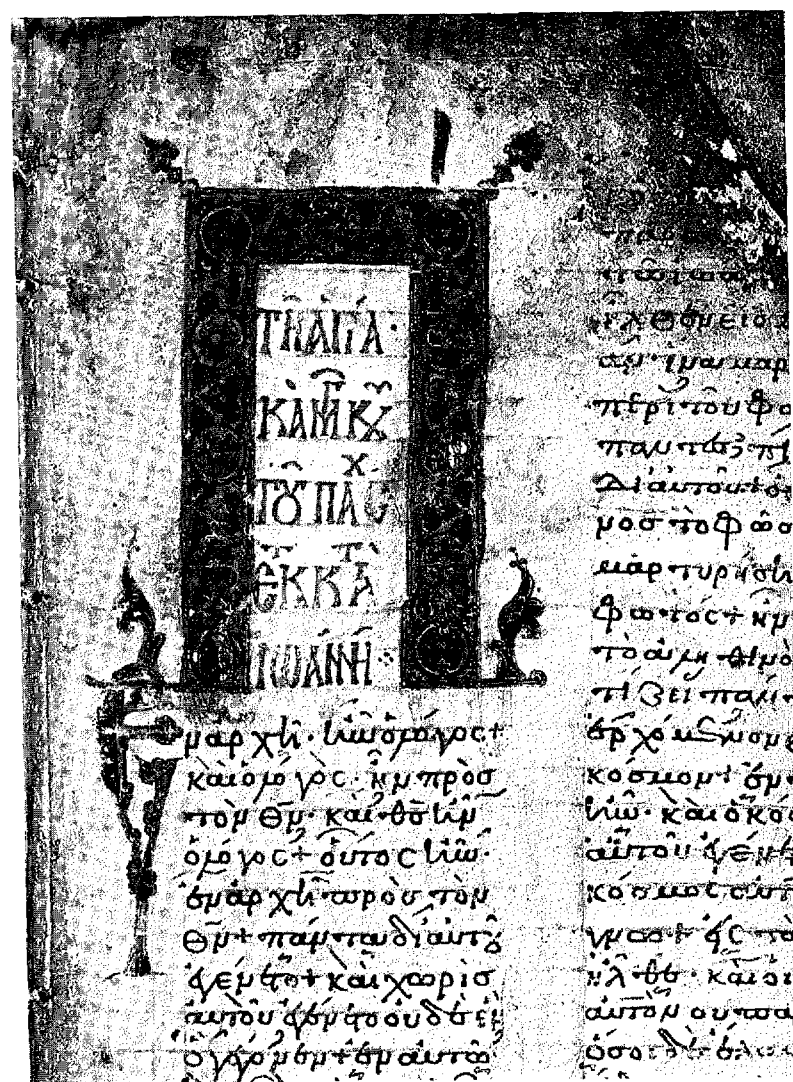 ΤΗ ΑΓΙΑ·
ΚΥ
ΤΟΥ ΠΑΣΧ
ΕΚ Τ ΚΑΤ
ΙΩΑΝΝΗ
μαρχῆ· ἦν ὁ λόγος+
καὶ ὁ λόγος· ἦν πρὸσ
τὸν θν· καὶ θσ ἦν
ὁ λόγος+ οὗτος ἦν·
ἐν ἀρχῆ πρὸσ τὸν
θν+ πάντα δι αὐτοῦ
ἐγένετο+ καὶ χωρὶσ
αὐτοῦ ἐγένετο οὐδὲ ἓν
ὃ γέγονεν+ ἐν αὐτῶ
ἵνα μαρ
περὶ τοῦ φω
πάντες πι
δι αὐτοῦ+ οὐ
τὸ φῶσ
μαρτυρήσ
φωτός+ ἦν
τὸ ἀληθινὸ
τίζει παν
κόσμον+ ἐν
ἦν· καὶ ὁ κός
αὐτοῦ ἐγένε
κόσμος αὐτ
γνω+ εἰς τὰ
ἦλθε· καὶ οἱ
αὐτὸν οὐ πα
ὅσοι δὲ ἔλα